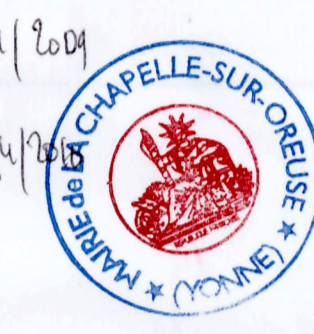 /2009
/2010
MAIRIE de LA CHAPELLE-SUR-OREUSE
★ (YONNE) ★